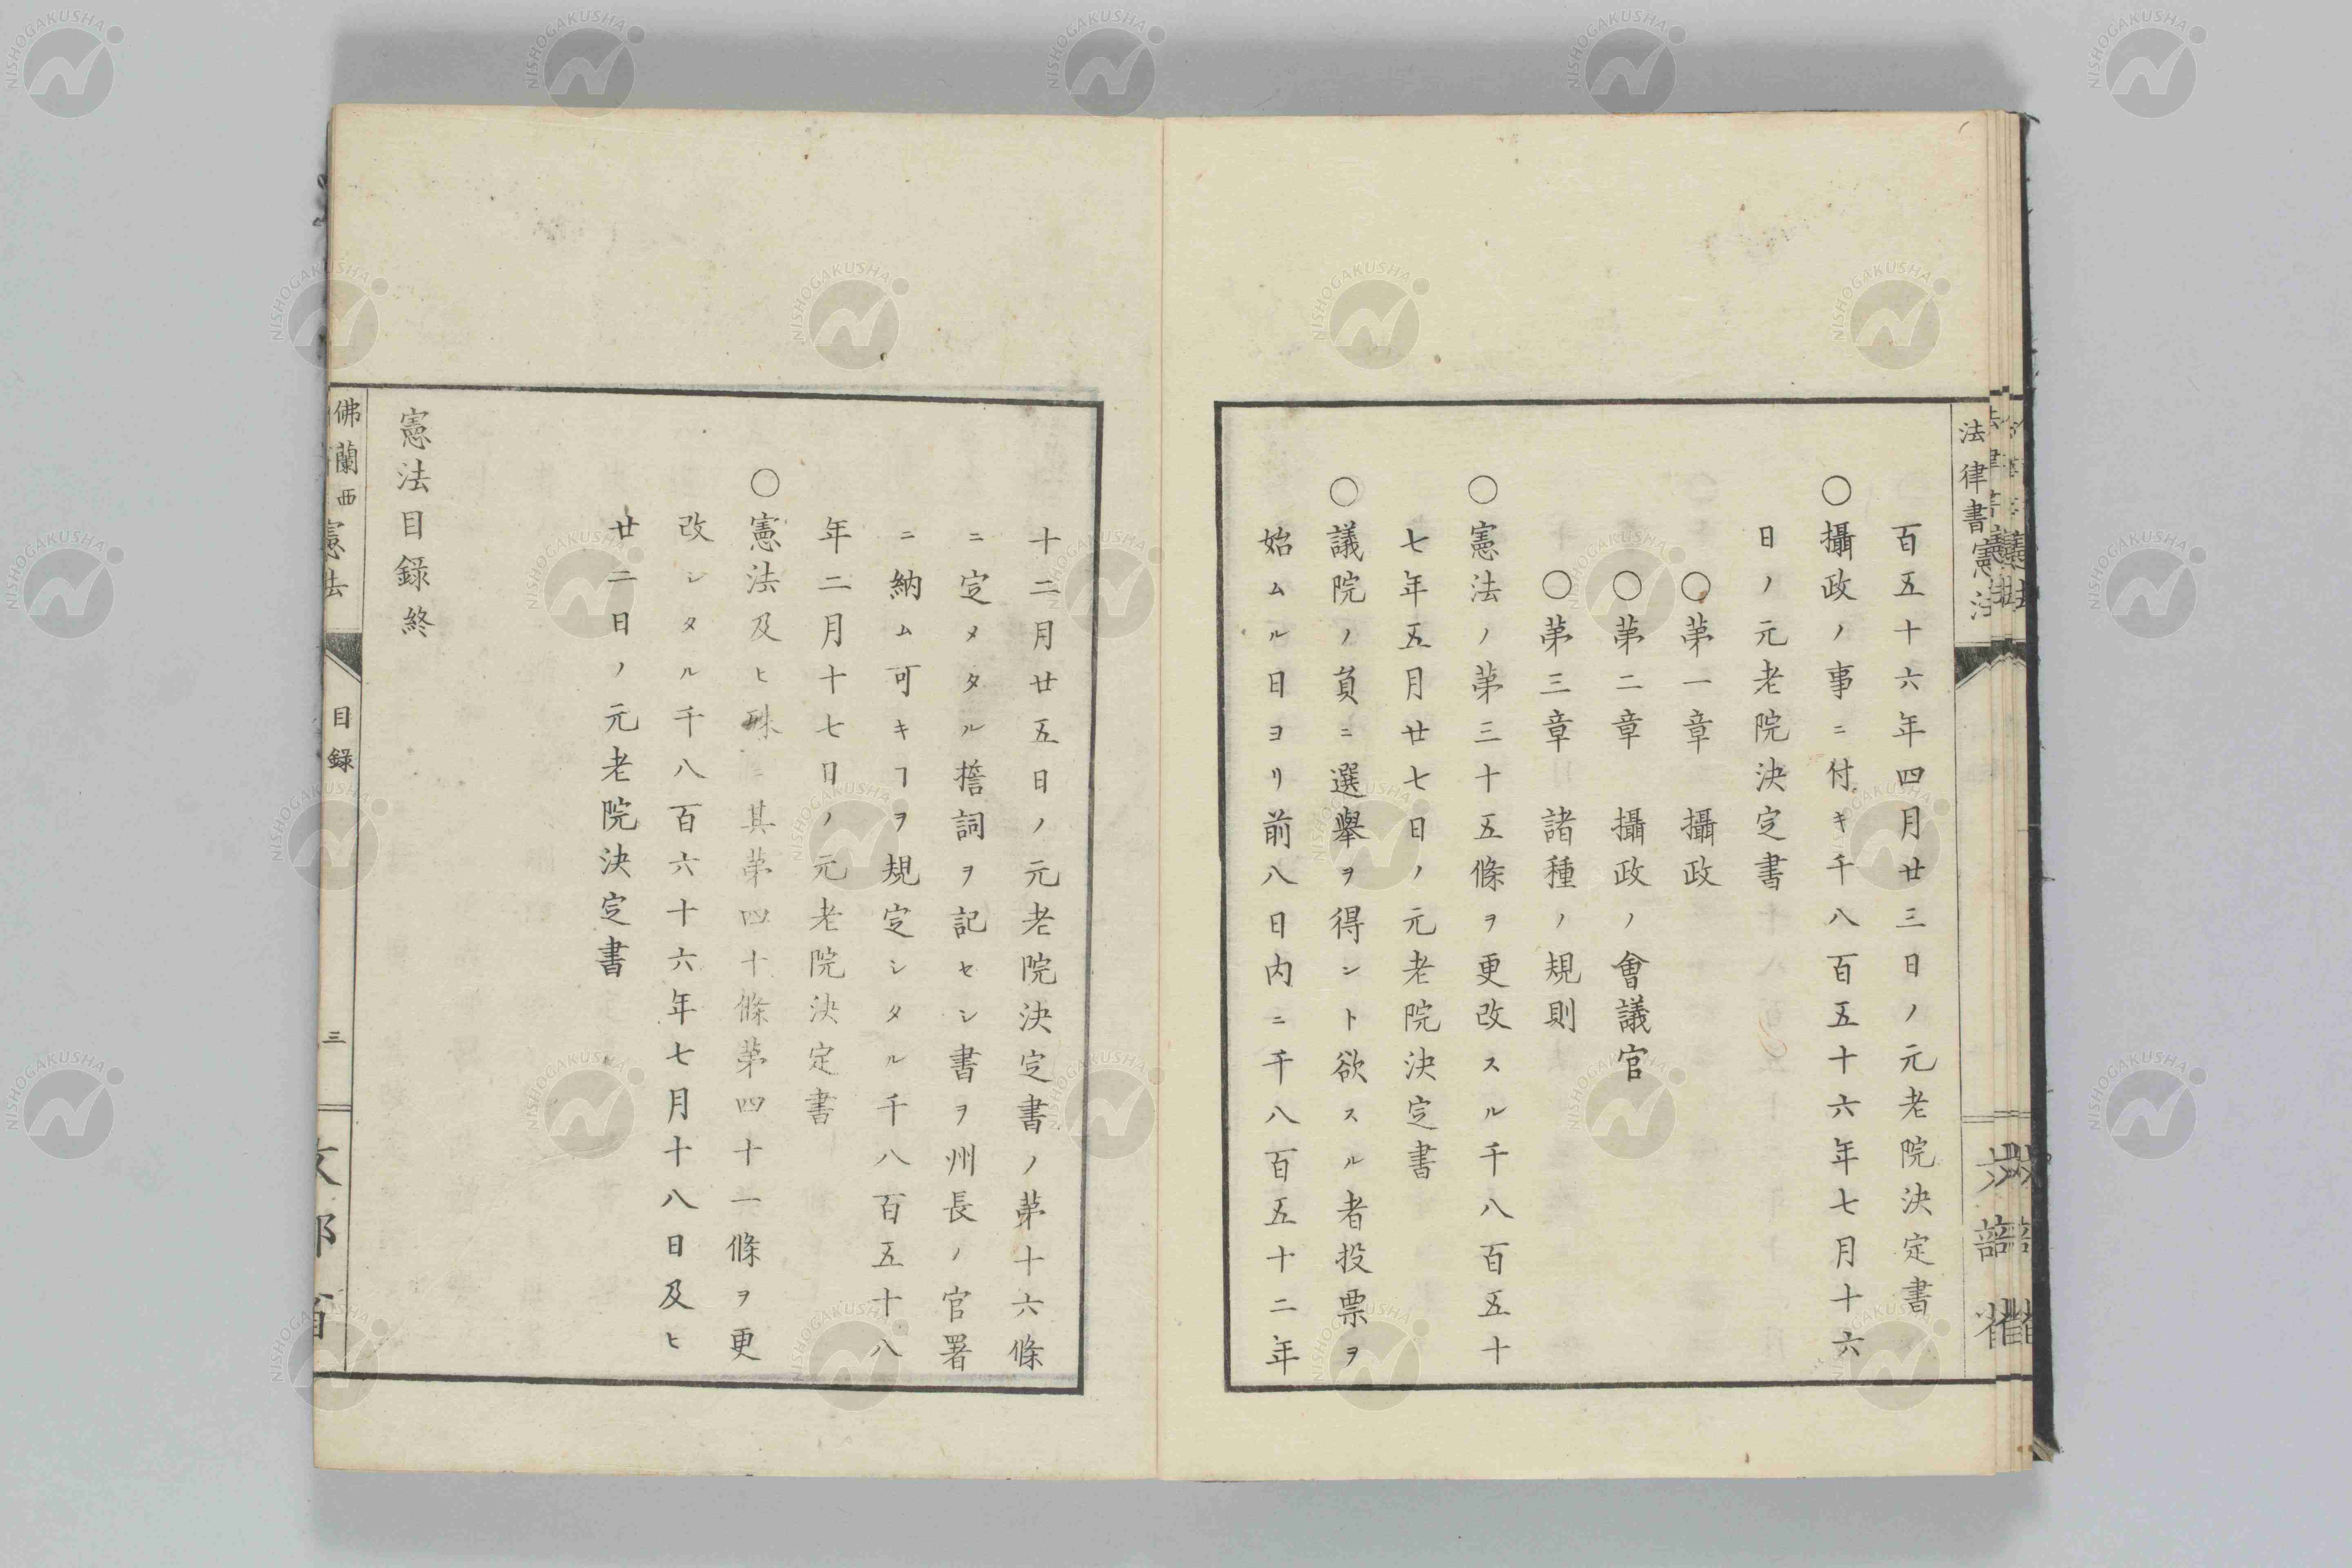 百五十六年四月廿三日ノ元老院決定書
○攝政ノ事ニ付キ千八百五十六年七月十六
日ノ元老院決定書
○第一章 攝政
○第二章 攝政ノ會議官
○第三章 諸種ノ規則
○憲法ノ第三十五條ヲ更改スル千八百五十
七年五月廿七日ノ元老院決定書
○議院ノ員ニ選舉ヲ得ント欲スル者投票ヲ
始ムル日ヨリ前八日内ニ千八百五十二年
十二月廿五日ノ元老院決定書ノ第十六條
ニ定メタル擔詞ヲ記セシ書ヲ州長ノ官署
ニ納ム可キヿヲ規定シタル千八百五十八
年二月十七日ノ元老院決定書
○憲法及ヒ殊ニ其第四十條第四十一條ヲ更
改シタル千八百六十六年七月十八日及ヒ
廿二日ノ元老院決定書
憲法目錄終
佛蘭西憲法 目錄 三
法律書憲法
NISHOGAKUSHA